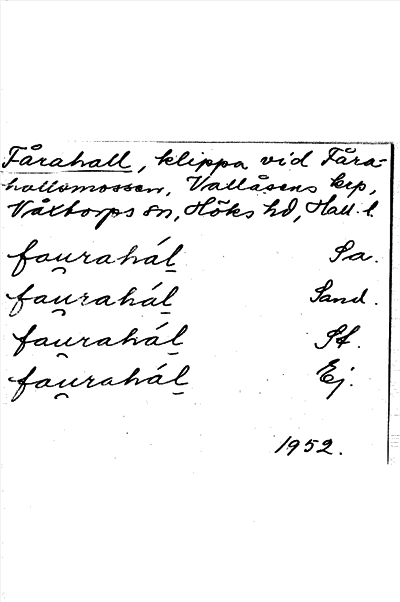 Fårahall, klippa vid Fåra-
hallsmossen, Vallåsens krp,
Våxtorps sn, Höks hd, Hall. l.
fau̯rahál̠ Sa.
fau̯rahál̠ Sand.
fau̯rahál̠ St.
fau̯rahál̠ Ej.
1952.